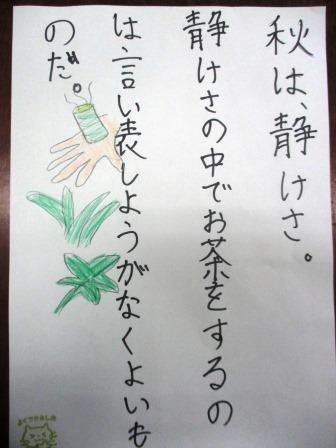 秋は、静けさ。
静けさの中でお茶をするの
は、言い表しようがなくよいも
のだ。
よくできました